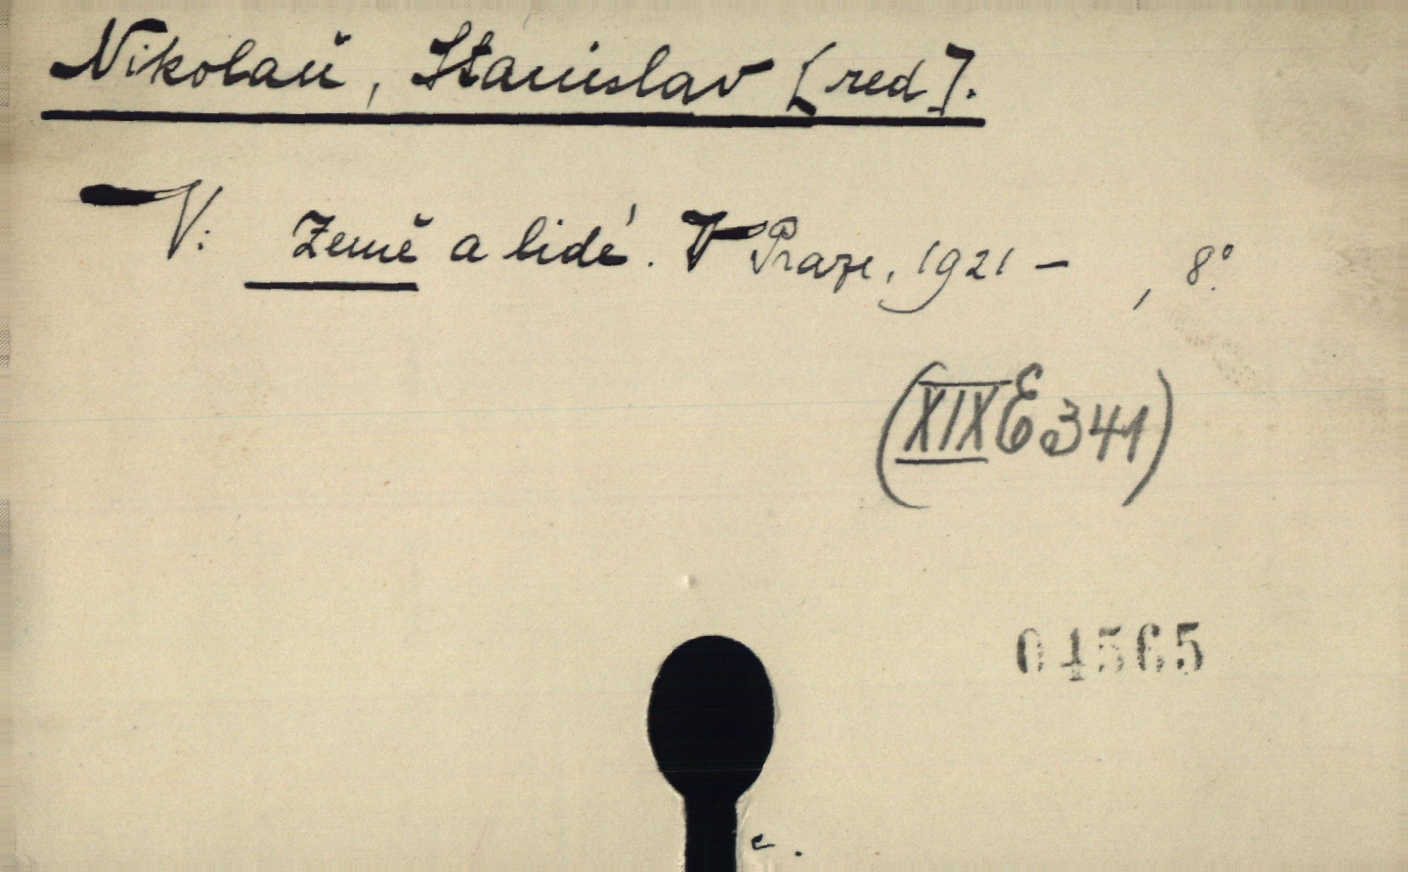 Nikolaŭ, Stanislav [red].
V: Země a lidé. V Praze, 1921 - , 8°.
(XIX E 341)
04565
c.